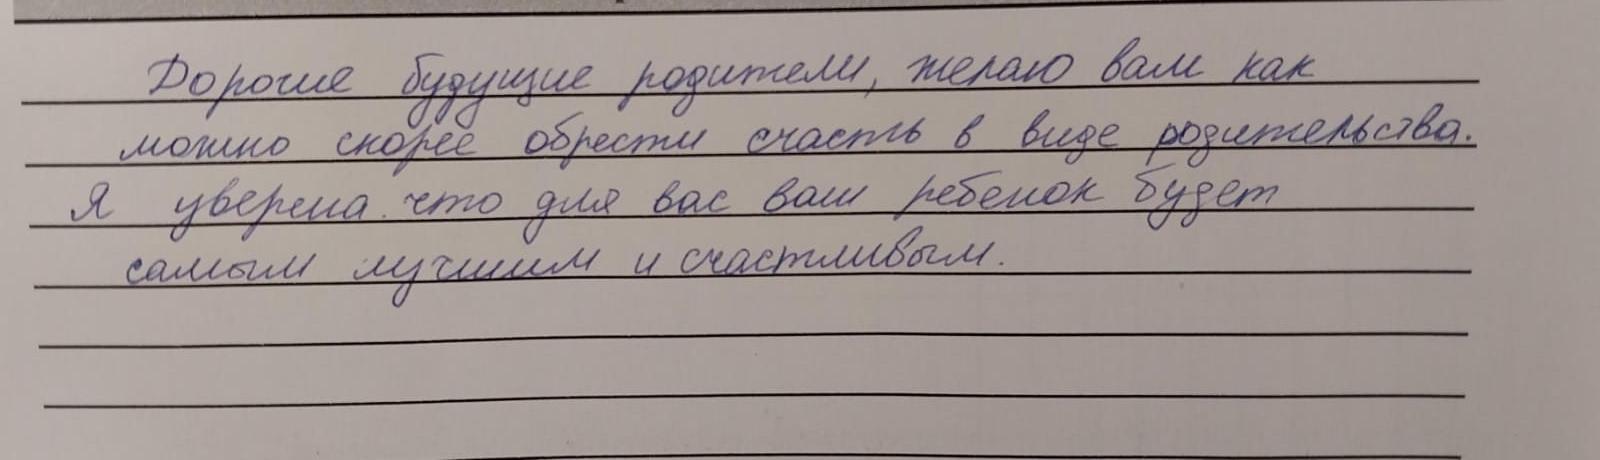 Дорогие будущие родители, желаю вам как
можно скорее обрести счасть в виде родительства.
Я уверена что для вас ваш ребенок будет
самым лучшим и счастливым.